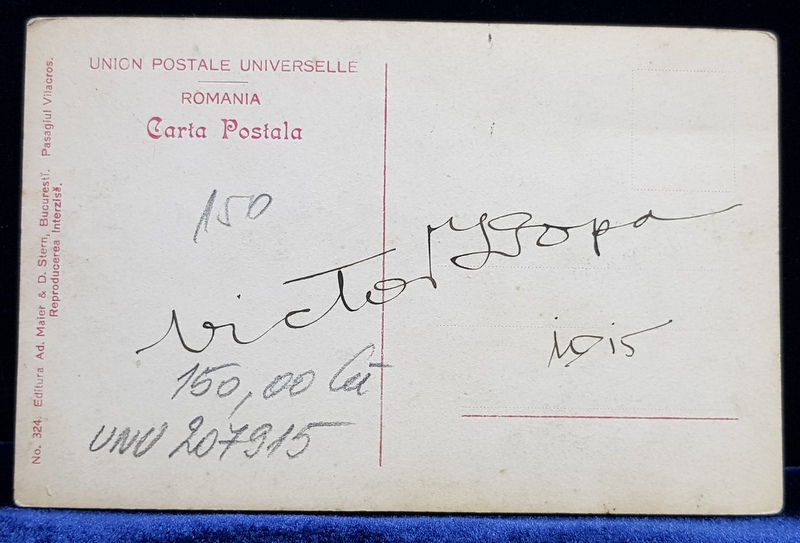 UNION POSTALE UNIVERSELLE
ROMANIA
Carta Postala
150
Victor I Popa
1915
150,00 lei
UNU 207915
No. 324. Editura Ad. Maier & D. Stern, Bucureștĭ. Pasagiul Vilacros.
Reproducerea Interzisă.